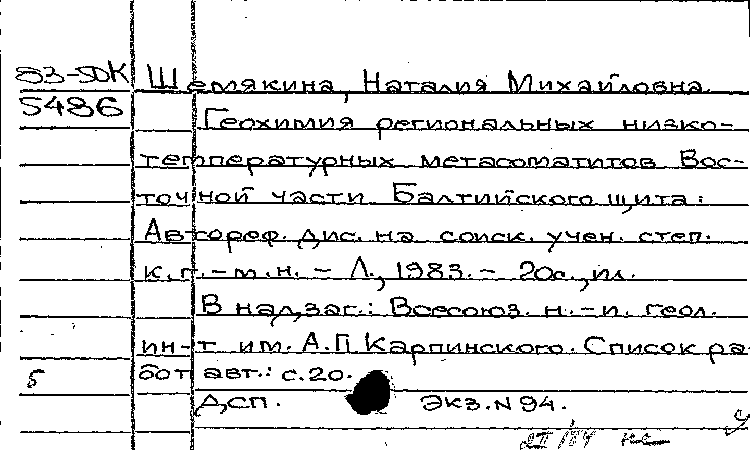 83-5ДК Шемякина, Наталия Михайловна
5486 Геохимия региональных низко-
температурных метасоматитов Вос-
точной части Балтийского щита:
Автореф. дис. на соиск. учен. степ.
к.г.-м.н. - Л., 1983. - 20с., ил.
В надзаг.: Всесоюз. н.-и. геол.
ин-т им. А.П. Карпинского. Список ра-
бот авт.: с.20.
Б
ДСП. Экз. N 94.